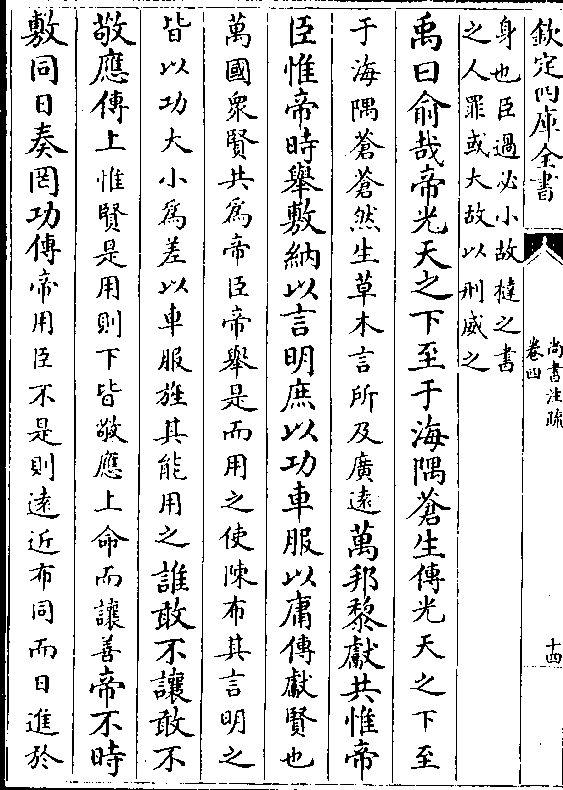 欽定四庫全書
尚書注疏
卷四
十四
身也臣過必小故撻之書
之人罪或大故以刑威之
禹曰俞哉帝光天之下至于海隅蒼生傳光天之下至
于海隅蒼蒼然生草木言所及廣遠萬邦黎獻共惟帝
臣惟帝時舉敷納以言明庶以功車服以庸傳獻賢也
萬國衆賢共爲帝臣帝舉是而用之使陳布其言明之
皆以功大小爲差以車服旌其能用之誰敢不讓敢不
敬應傳上惟賢是用則下皆敬應上命而讓善帝不時
敷同日奏罔功傳帝用臣不是則遠近布同而日進於